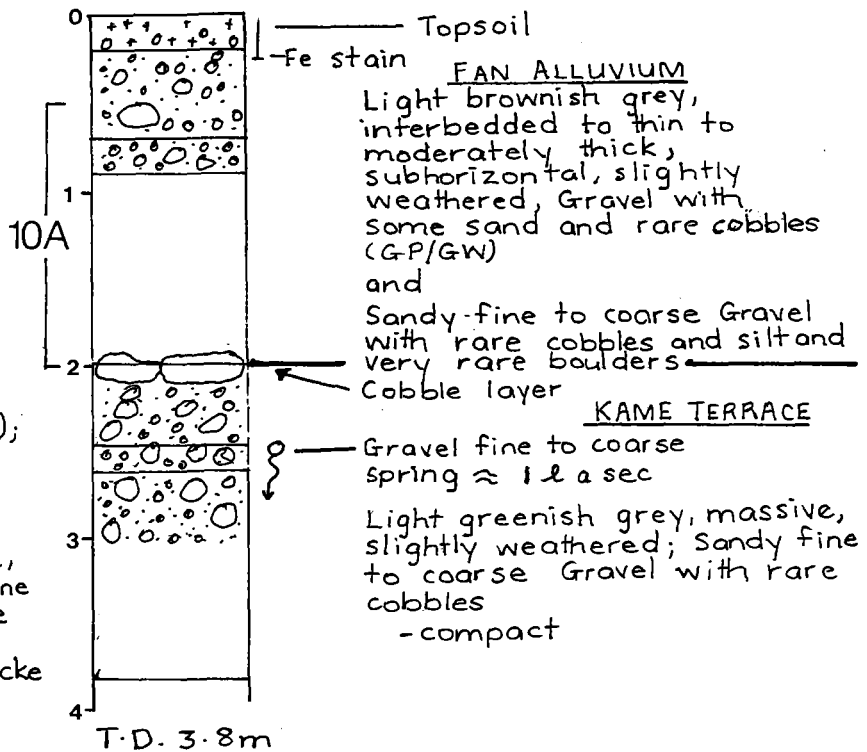 0
Topsoil
Fe stain
FAN ALLUVIUM
Light brownish grey,
interbedded to thin to
moderately thick,
subhorizontal, slightly
weathered, Gravel with
some sand and rare cobbles
(GP/GW)
and
Sandy-fine to coarse Gravel
with rare cobbles and silt and
very rare boulders
1
10A
2
Cobble layer
KAME TERRACE
);
Gravel fine to coarse
spring ≈ 1 l a sec
Light greenish grey, massive,
slightly weathered; Sandy fine
to coarse Gravel with rare
cobbles
- compact
3
ne
e
cke
4
T.D. 3.8m